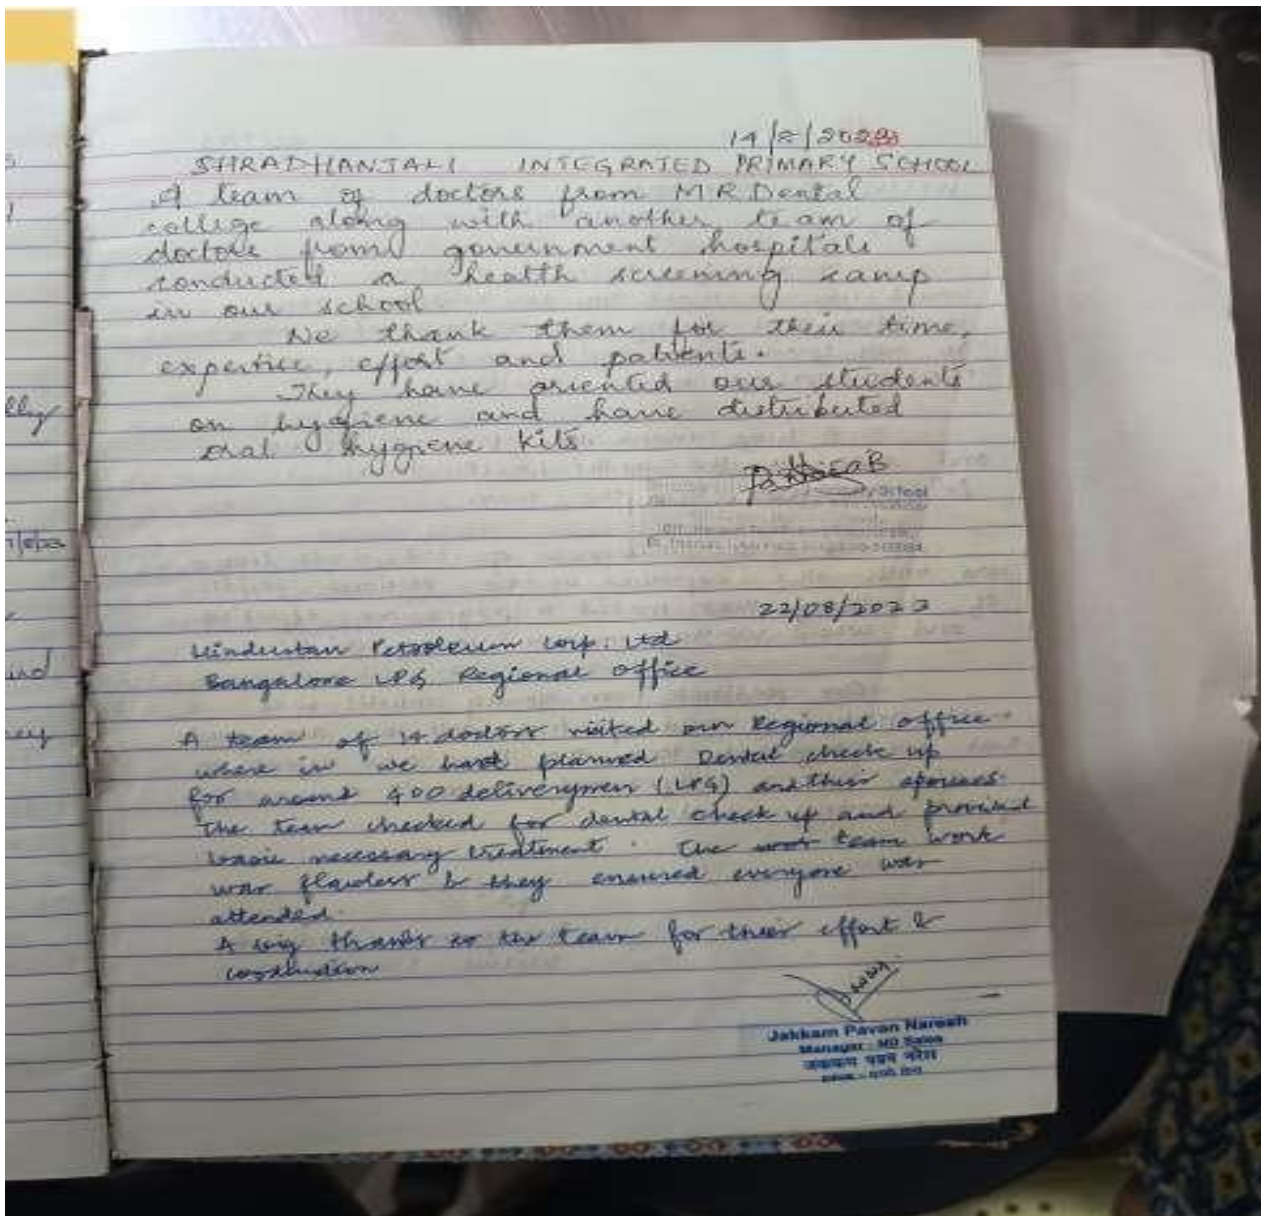 14/2/2023
SHRADHANJALI INTEGRATED PRIMARY SCHOOL
A team of doctors from M R Dental
college along with another team of
doctors from government hospitals
conducted a health screening camp
in our school
We thank them for their time,
expertise, effort and patients.
They have oriented our students
on hygiene and have distributed
oral hygiene kits
22/08/2023
Hindustan Petroleum Corp. Ltd
Bangalore LPG Regional Office
A team of 14 doctors visited our Regional office
where in we have planned Dental check up
for around 400 deliverymen (LPG) and their spouses.
The team checked for dental check up and provided
basic necessary treatment. The team work
was flawless & they ensured everyone was
attended.
A big thanks to the team for their effort &
coordination
Jakkam Pavan Naresh
Manager - MD Sales